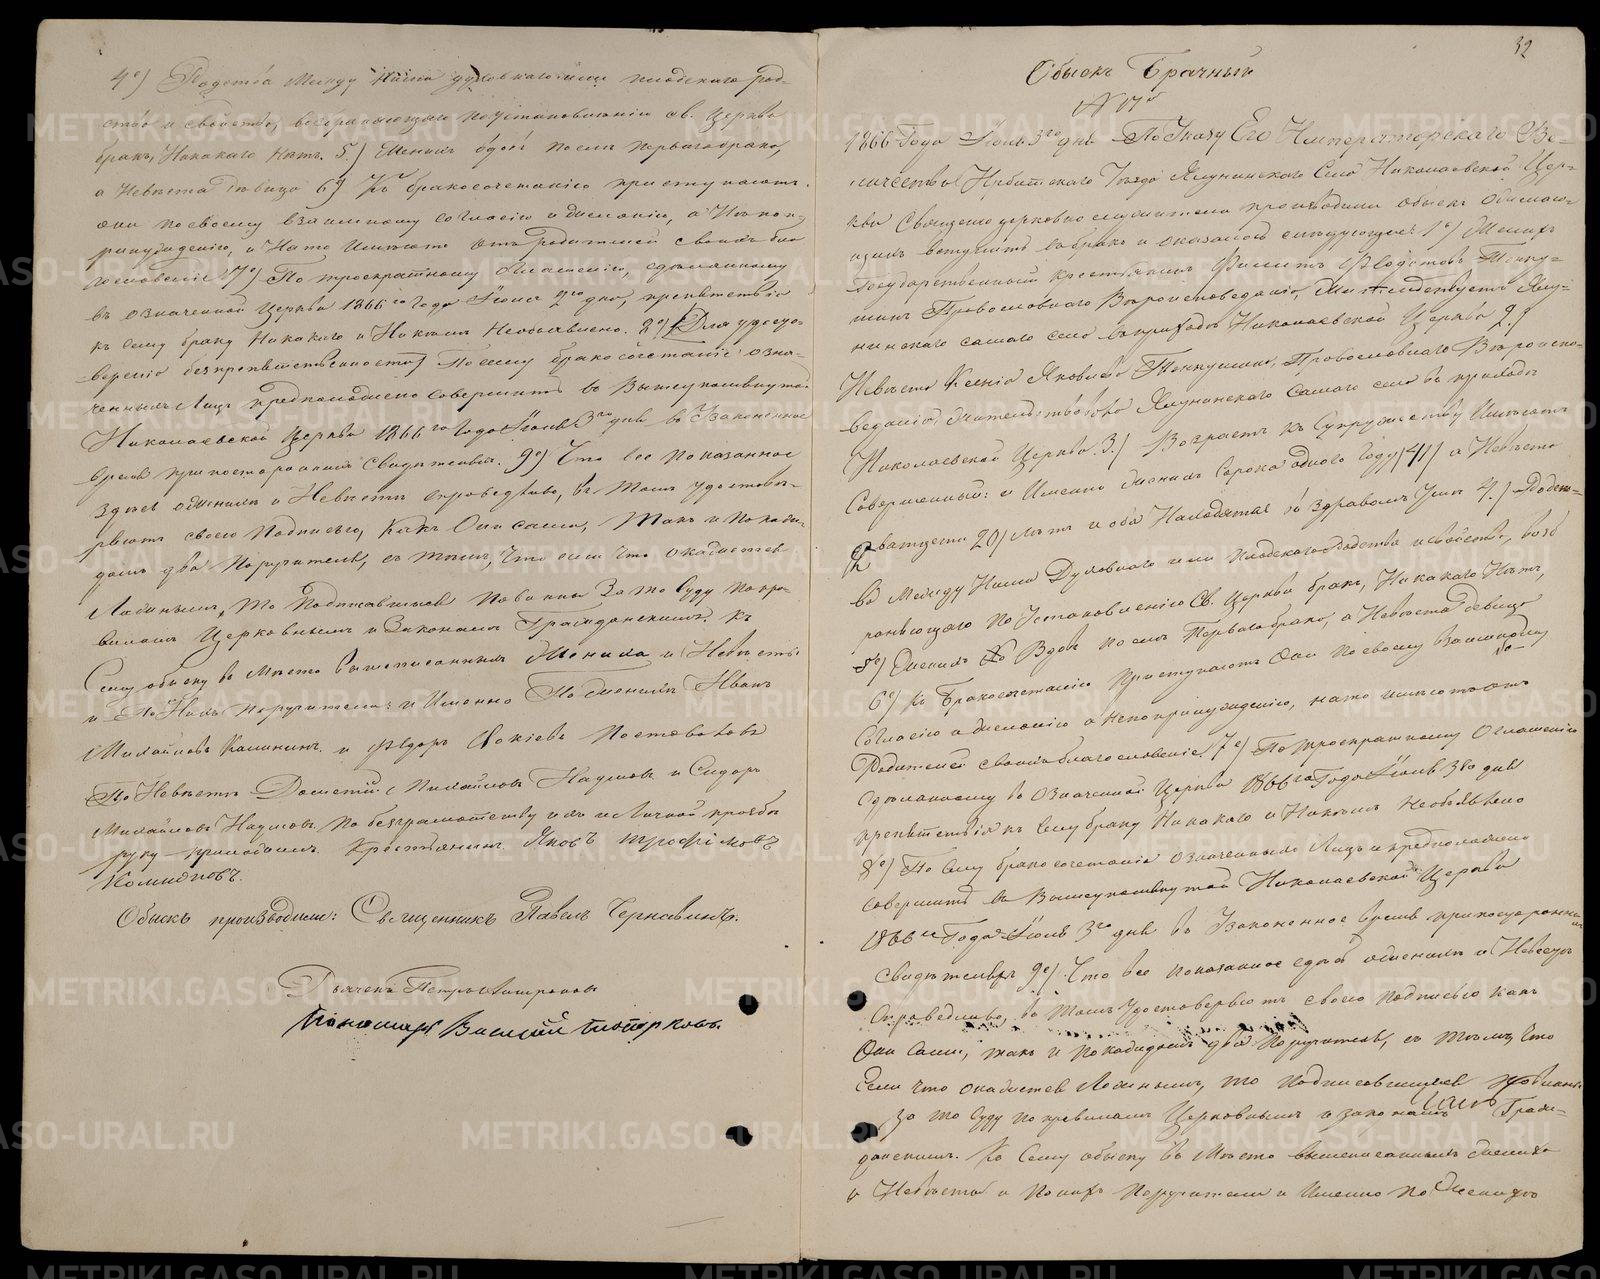 4е) Родства между ними духовнаго или плотскаго род-
ства и свойства, возбраняющаго по установлению св. Церкви
бракъ, никакаго нѣтъ. 5.) Женихъ вдовъ послѣ перваго брака,
а невѣста дѣвица 6) Къ бракосочетанію приступаютъ
они по своему взаимному согласію и желанію, а не по при-
нужденію, и на то имѣютъ отъ родителей своихъ бла
гословеніе 7е) По троекратному оглашенію, сдѣланному
въ означенной церкви 1866го года Іюля дня, препятствія
къ сему браку никакаго и никѣмъ не объявлено. 8е) Для удосто-
веренія безпрепятственности по сему бракосочетаніе озна-
ченныхъ лицъ предположено совершить въ вышеупомянутой
Николаевской церкви 1866го года Іюля 3го дня въ узаконенное
время при постороннихъ свидѣтеляхъ. 9е) Что все показанное
здѣсь о женихѣ и невѣстѣ справедливо, въ томъ удостовѣ-
ряютъ своею подписью, какъ они сами, такъ и по кажд-
домъ два поручителя, съ тѣмъ, что если что окажется
ложнымъ, то подписавшіеся повинны за то суду по пра-
виламъ церковнымъ и законамъ гражданскимъ. Къ
сему обыску вмѣсто вышеписанныхъ жениха и невѣсты
и по нихъ поручители: и именно по женихѣ Иванъ
Михайловъ Калининъ и Ѳедоръ Постоваловъ
По невѣстѣ Дометій Михайловъ Наумовъ и Сидоръ
Михайловъ Наумовъ по безграмотству ихъ и личной прозьбѣ
руку приложилъ крестьянинъ Яковъ Трофимовъ
Обыскъ производили: Священникъ Павелъ Чернавинъ.
Дьячекъ Петръ
Пономарь Василій
32
Обыскъ Брачный
№ 17й
1866 Года Іюля 3го дня По Указу Его Императорскаго Ве-
личества Ирбитскаго уѣзда Ялунинскаго села Николаевской Цер-
кви Священноцерковнослужители производили обыскъ о желаю-
щихъ вступить въ бракъ и оказалось слѣдующее: 1е) Женихъ
государственный крестьянинъ Ѳедотовъ
Православнаго Вѣроисповеданія, жительствуетъ Ялу-
нинскаго самаго села въ приходѣ Николаевской Церкви 2.)
Невѣста Ксенія Яковлева Православнаго Вѣроиспо-
веданія, жительствовала Ялунинскаго самаго села въ приходѣ
Николаевской Церкви. 3.) Возрастъ къ супружеству имѣютъ
совершенный: и именно женихъ сорока одного году /41/ а невѣста
двадцати 20/ лѣтъ и оба находятся въ здравомъ умѣ 4.) Родст-
ва между ними духовнаго или плотскаго родства и свойства, возб
раняющаго по установленію Св. Церкви бракъ, никакаго нѣтъ,
5е) Женихъ вдовъ послѣ перваго брака, а невѣста девица
6е) Къ бракосочетанію приступаютъ они по своему взаимному
согласію и желанію а не по принужденію, на то имѣютъ отъ
родителей своихъ благословеніе. 7е) По троекратному оглашенію
сдѣланному въ означенной Церкви 1866го года Іюля 3го дня
препятствія къ сему браку никакаго и никѣмъ не объявлено
8е) По сему бракосочетаніе означенныхъ лицъ и предположено
совершить въ вышеупомянутой Николаевской Церкви
1866го Года Іюля 3го дня въ узаконенное время при постороннихъ
свидѣтеляхъ 9е) Что все показанное здѣсь о женихѣ и невестѣ
справедливо, въ томъ удостоверяютъ своею подписью какъ
они сами, такъ и по каждомъ два поручителя, съ тѣмъ, что
если что окажется ложнымъ, то подписавшіеся повинны
за то суду по правиламъ Церковнымъ и законамъ Граж-
данскимъ. Къ сему обыску вмѣсто вышеписанныхъ жениха
и невѣсты и по нихъ поручители и именно по женихѣ